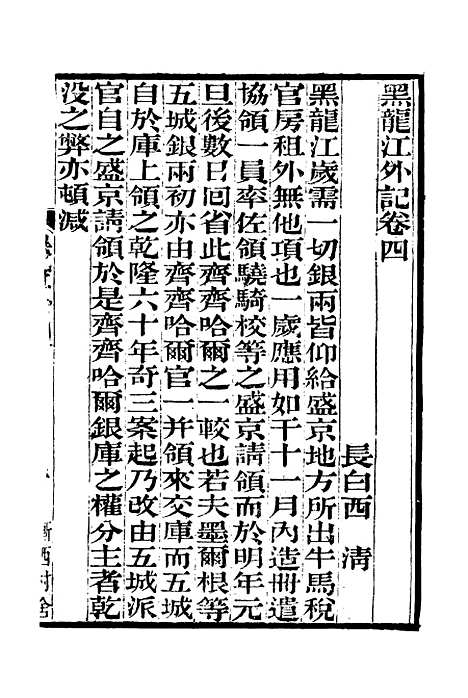 黑龍江外記卷四
長白西 清
黑龍江歲需一切銀兩皆仰給盛京地方所出牛馬稅
官房租外無他項也一歲應用如干十一月內造冊遣
協領一員率佐領驍騎校等之盛京請領而於明年元
旦後數日回省此齊齊哈爾之一較也若夫墨爾根等
五城銀兩初亦由齊齊哈爾官一并領來交庫而五城
自於庫上領之乾隆六十年奇三案起乃改由五城派
官自之盛京請領於是齊齊哈爾銀庫之權分主者乾
没之弊亦頓減
漸西村舍